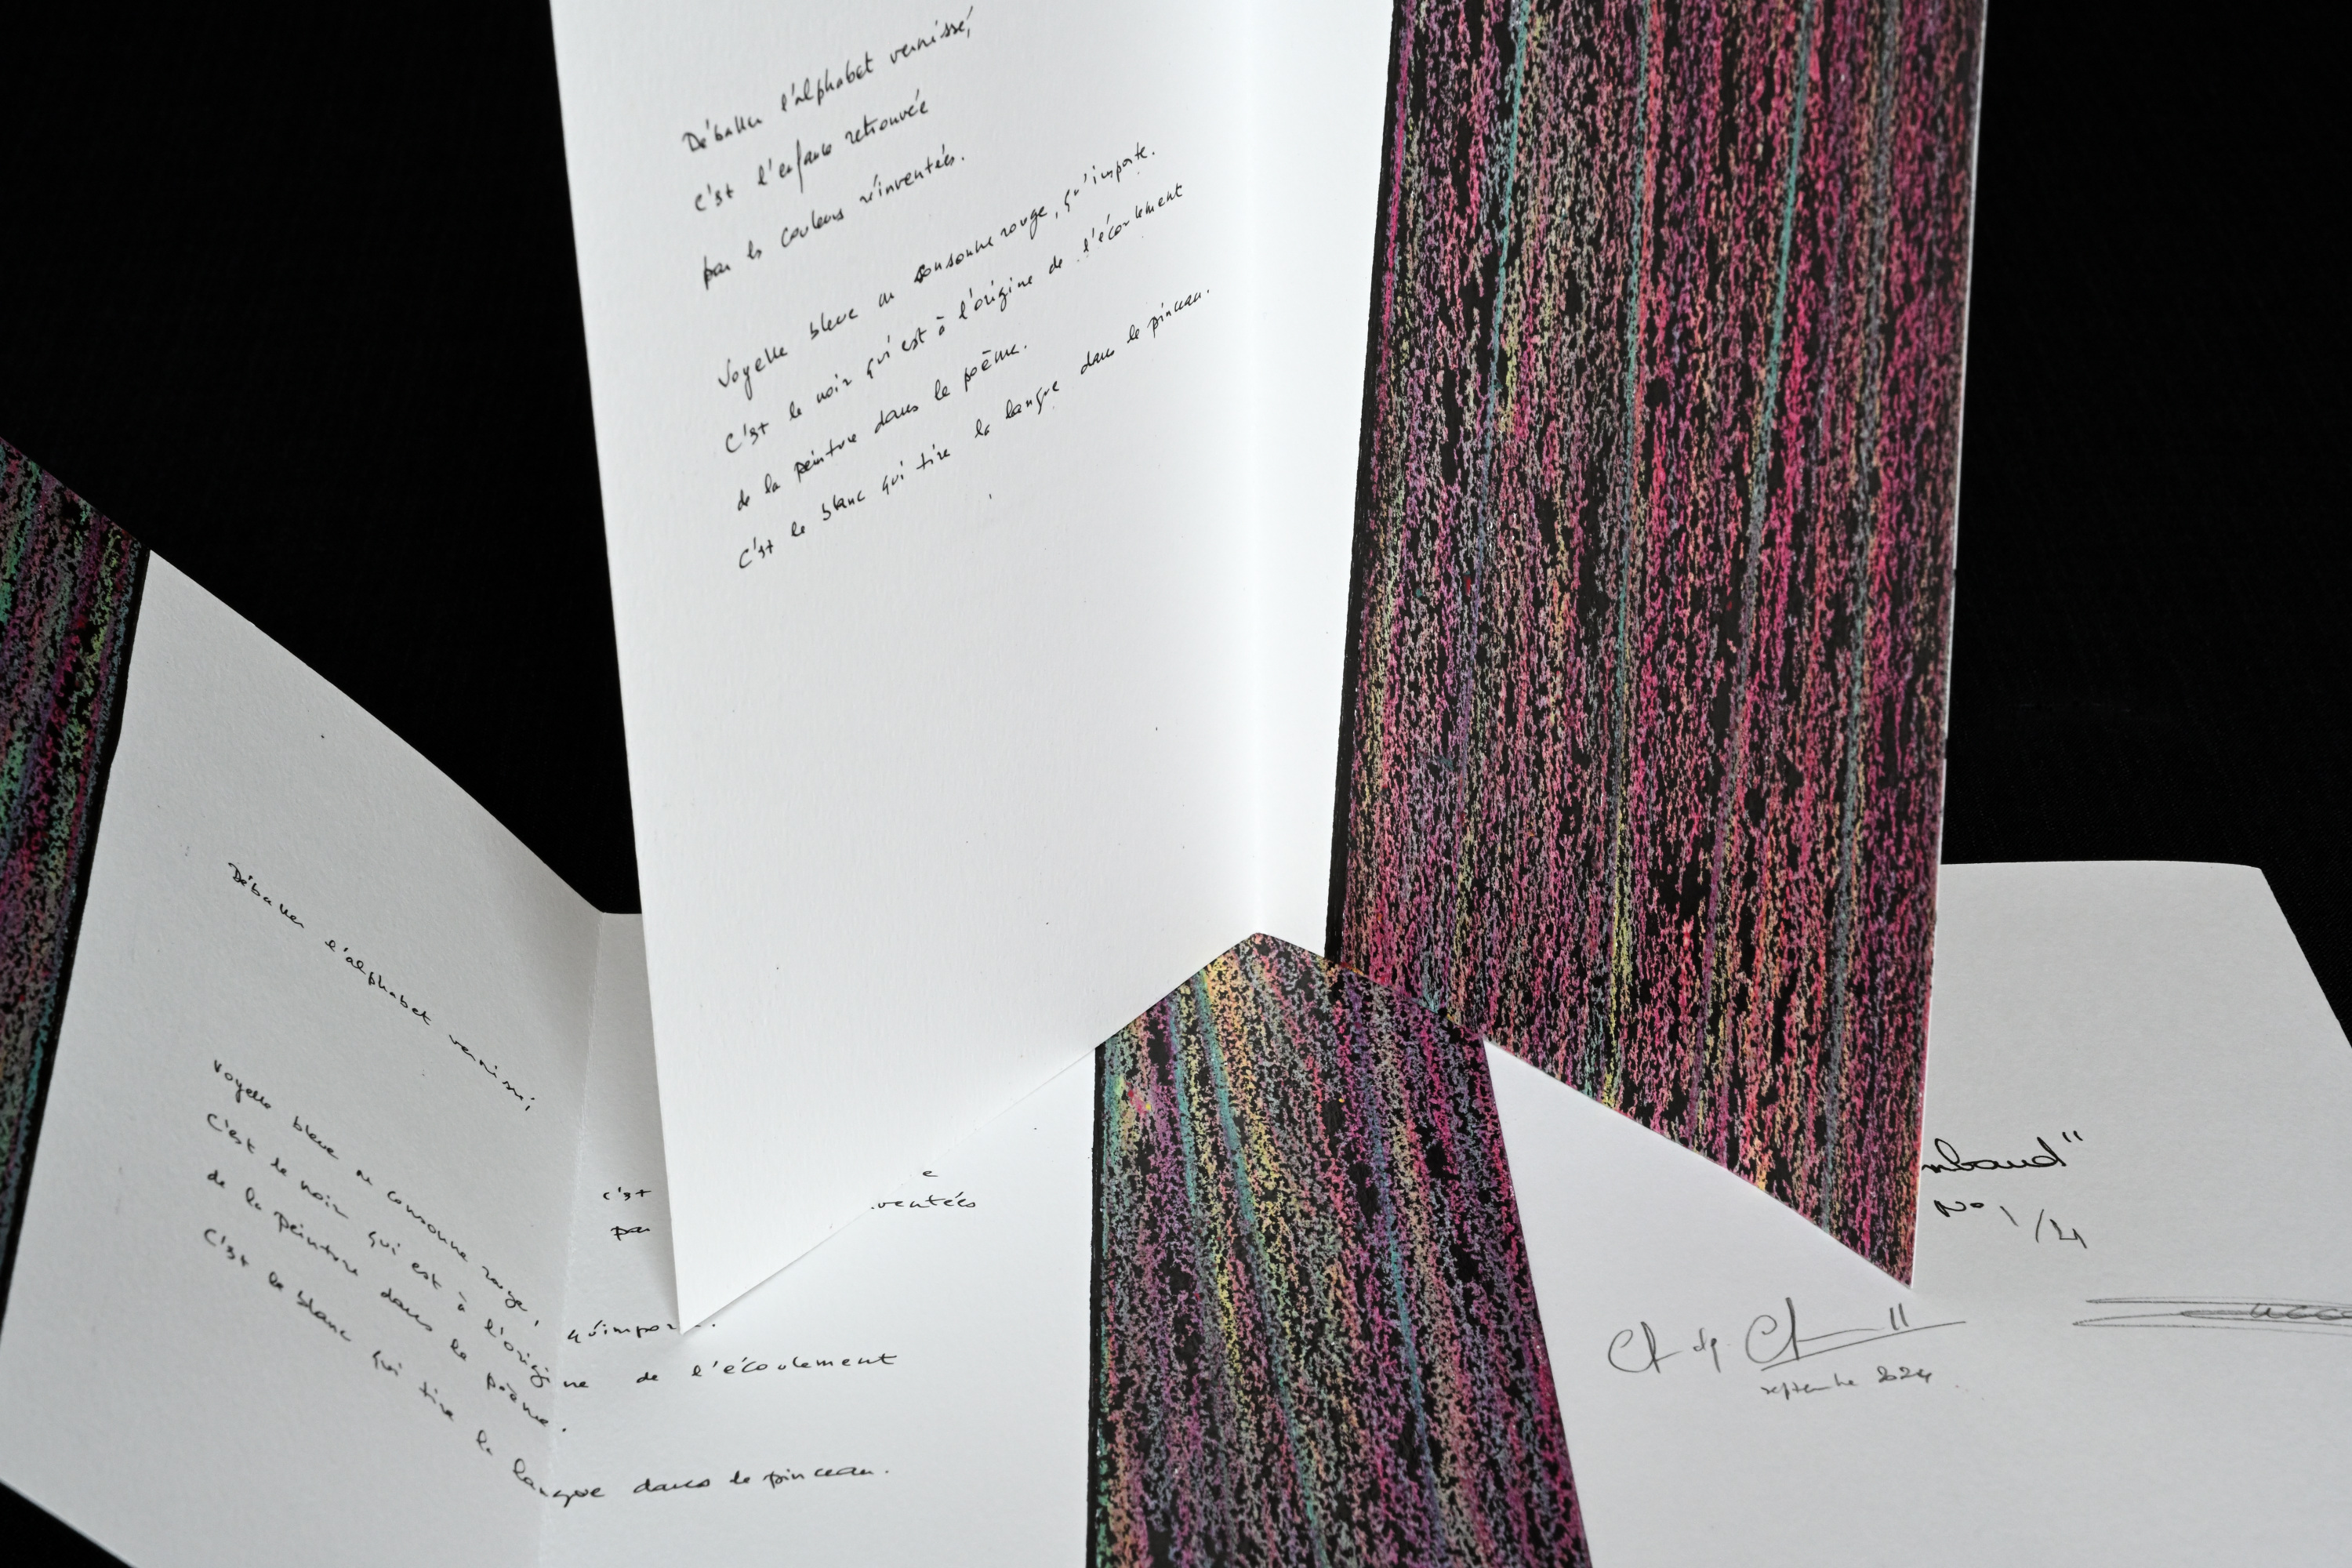 Déballer l'alphabet vernissé,
c'est l'enfance retrouvée
par les couleurs réinventées.
Voyelle bleue ou consonne rouge, qu'importe.
C'est le noir qui est à l'origine de l'écoulement
de la peinture dans le poème.
C'est le blanc qui tire la langue dans le pinceau.
Déballer l'alphabet vernissé,
c'est e
par ventées
Voyelle bleue ou consonne rouge, qu'impor .
C'est le noir qui est à l'origine de l'écoulement
de la peinture dans le poème.
C'est le blanc qui tire la langue dans le pinceau.
mbaud"
N° 1/4
septembre 2024